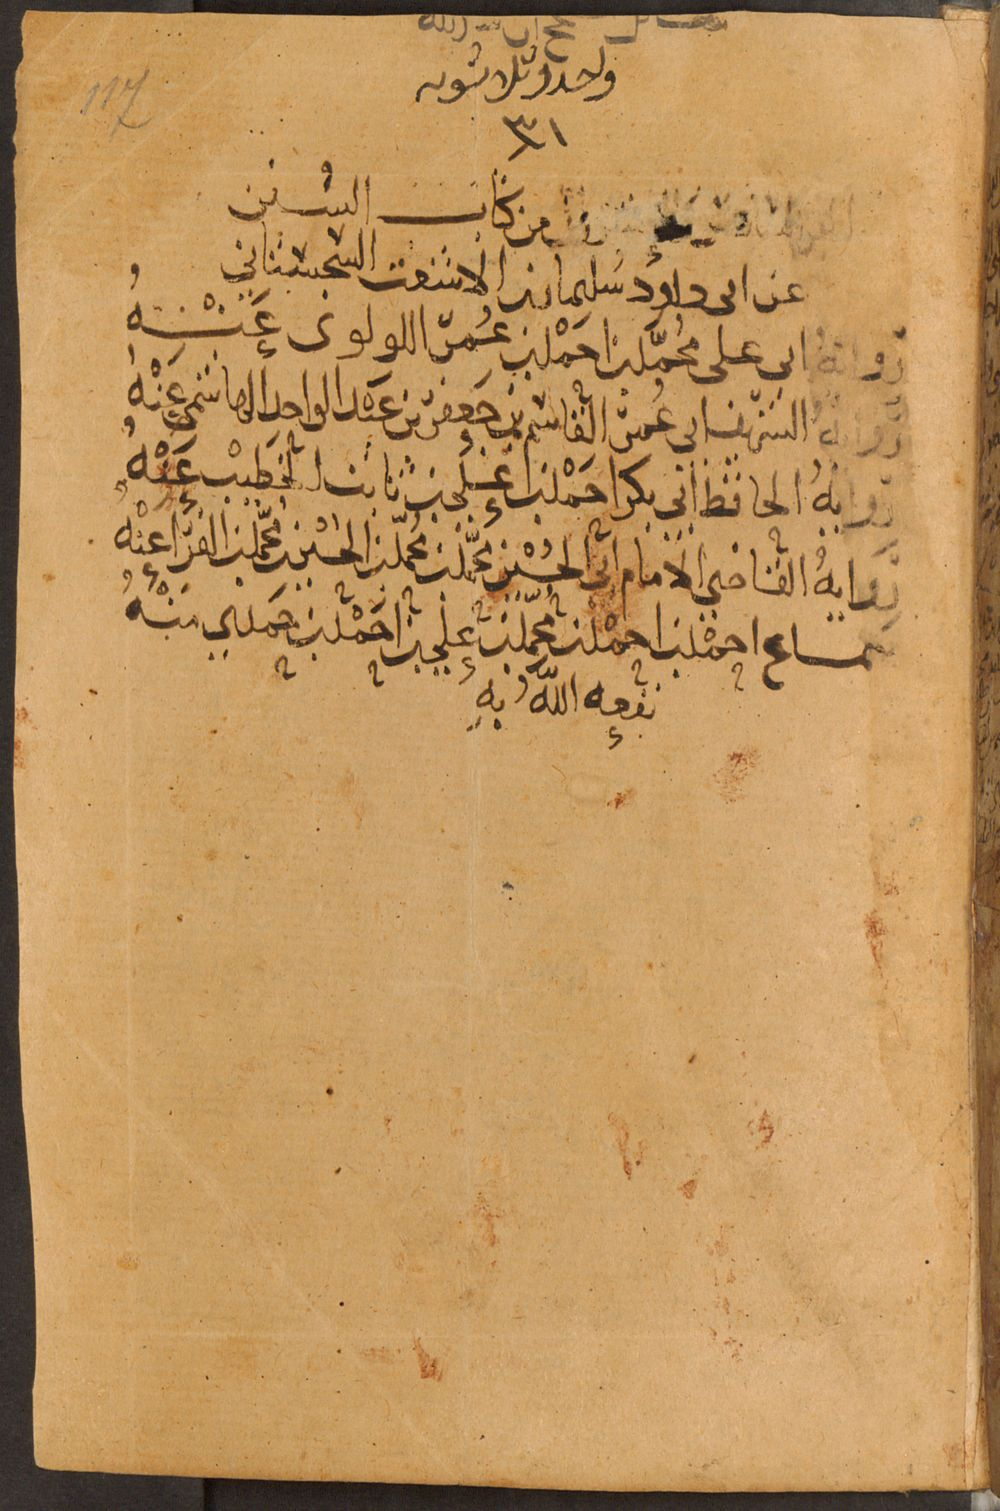 117
واحد وثلاثون
٣١
من كتاب السنن
عن ابى داود سليمان بن الاشعث السجستاني
رواية ابى على محمد بن احمد بن عمر اللولوى عنه
رواية الشريف ابى عمر القاسم بن جعفر بن عبد الواحد الهاشمي عنه
رواية الحافظ ابي بكر احمد بن علي بن ثابت الخطيب عنه
رواية القاضي الامام ابي الحسين محمد بن محمد بن الحسين بن محمد بن الفرا عنه
سماع احمد بن احمد بن محمد بن علي بن احمد بن حمدي منه
نفعه الله به